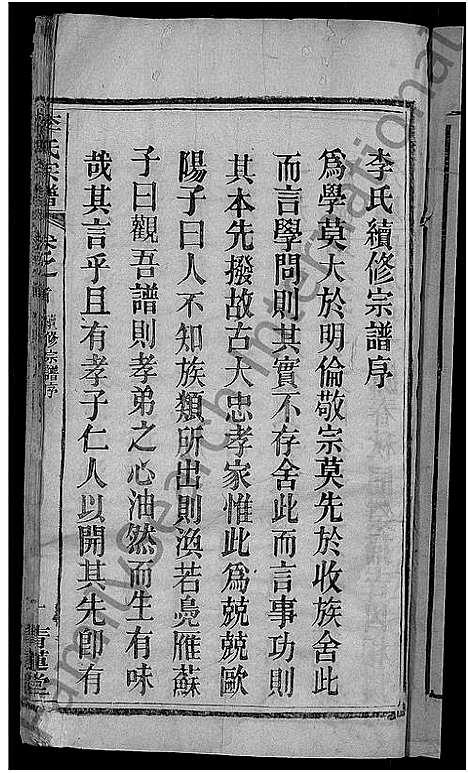 李氏續修宗譜序
爲學莫大於明倫敬宗莫先於收族舍此
而言學問則其實不存舍此而言事功則
其本先撥故古大忠孝家惟此爲兢兢歐
陽子曰人不知族類所出則渙若鳧雁蘇
子曰觀吾譜則孝弟之心油然而生有味
哉其言乎且有孝子仁人以開其先卽有
李氏宗譜 卷之首 續修宗譜序 一 青蓮堂
FamilySearch International